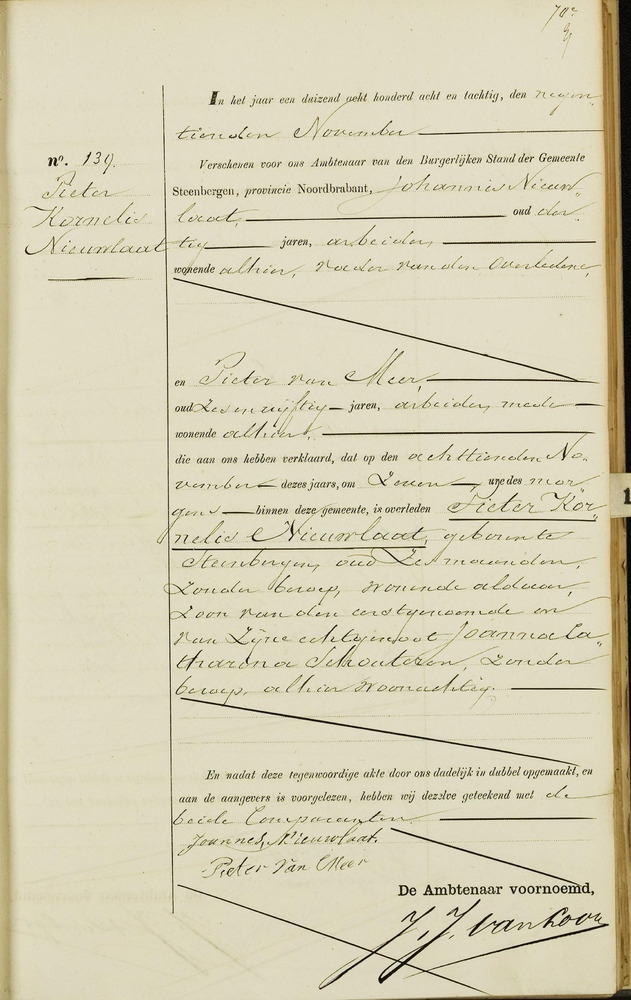 In het jaar een duizend acht honderd acht en tachtig, den negen
tienden November
no. 139.
Pieter
Kornelis
Nieuwlaat
Verschenen voor ons Ambtenaar van den Burgerlijken Stand der Gemeente
Steenbergen, provincie Noordbrabant, Johannis Nieuw„
laat, oud der„
tig jaren, arbeider,
wonende alhier, vader van den overledene,
en Pieter van Meer,
oud Zes en vijftig jaren, arbeider, mede
wonende alhier,
die aan ons hebben verklaard, dat op den achttienden No„
vember dezes jaars, om Zeven ure des mor„
gens binnen deze gemeente, is overleden Pieter Kor„
nelis Nieuwlaat, geboren te
Steenbergen, oud Zes maanden,
Zonder beroep, wonende aldaar,
Zoon van den eerstgenoemde en
van Zijne echtgenoot Joanna Ca„
tharina Schouteren, Zonder
beroep, alhier woonachtig.
En nadat deze tegenwoordige akte door ons dadelijk in dubbel opgemaakt, en
aan de aangevers is voorgelezen, hebben wij dezelve geteekend met de
beide Comparanten.
Joannes, Nieuwlaat.
Pieter Van Meer
De Ambtenaar voornoemd,
J. J. van Loon
1